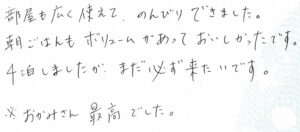 部屋も広く使えて、のんびりできました。
朝ごはんもボリュームがあっておいしかったです。
4泊しましたが、まだ必ず来たいです。
※おかみさん最高でした。